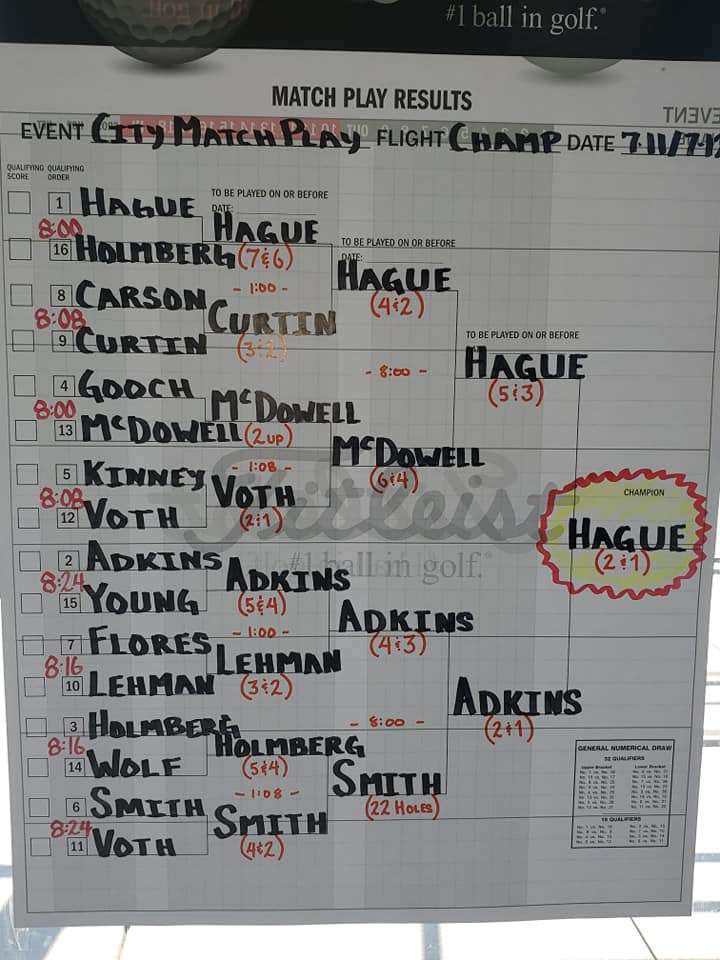 #1 ball in golf.®
MATCH PLAY RESULTS
EVENT CITY MATCH PLAY FLIGHT CHAMP DATE 7.11/7.12
QUALIFYING SCORE QUALIFYING ORDER
TO BE PLAYED ON OR BEFORE
DATE:
1 HAGUE
8:00
HAGUE
(7&6)
16 HOLMBERG
TO BE PLAYED ON OR BEFORE
DATE:
- 1:00 -
HAGUE
(4&2)
8 CARSON
8:08
CURTIN
(3&2)
9 CURTIN
TO BE PLAYED ON OR BEFORE
- 8:00 -
HAGUE
(5&3)
4 GOOCH
8:00
McDOWELL
(2 UP)
13 McDOWELL
- 1:08 -
McDOWELL
(6&4)
5 KINNEY
8:08
VOTH
(2&1)
12 VOTH
Titleist
#1 ball in golf.®
CHAMPION
HAGUE
(2&1)
2 ADKINS
8:24
ADKINS
(5&4)
15 YOUNG
- 1:00 -
ADKINS
(4&3)
7 FLORES
8:16
LEHMAN
(3&2)
10 LEHMAN
- 8:00 -
ADKINS
(2&1)
3 HOLMBERG
8:16
HOLMBERG
(5&4)
14 WOLF
- 1:08 -
SMITH
(22 HOLES)
6 SMITH
8:24
SMITH
(4&2)
11 VOTH
GENERAL NUMERICAL DRAW
32 QUALIFIERS
Upper Bracket Lower Bracket
16 QUALIFIERS